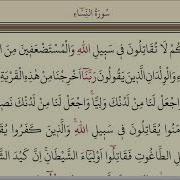 سُورَةُ النِّسَاءِ
كُمْ لَا تُقَاتِلُونَ فِي سَبِيلِ اللَّهِ وَالْمُسْتَضْعَفِينَ مِنَ
ءِ وَالْوِلْدَانِ الَّذِينَ يَقُولُونَ رَبَّنَا أَخْرِجْنَا مِنْ هَٰذِهِ الْقَرْيَةِ
عَلْ لَنَا مِنْ لَدُنْكَ وَلِيًّا وَاجْعَلْ لَنَا مِنْ لَدُنْكَ نَصِ
مَنُوا يُقَاتِلُونَ فِي سَبِيلِ اللَّهِ وَالَّذِينَ كَفَرُوا يُقَ
لِ الطَّاغُوتِ فَقَاتِلُوا أَوْلِيَاءَ الشَّيْطَانِ إِنَّ كَيْدَ الشَّ